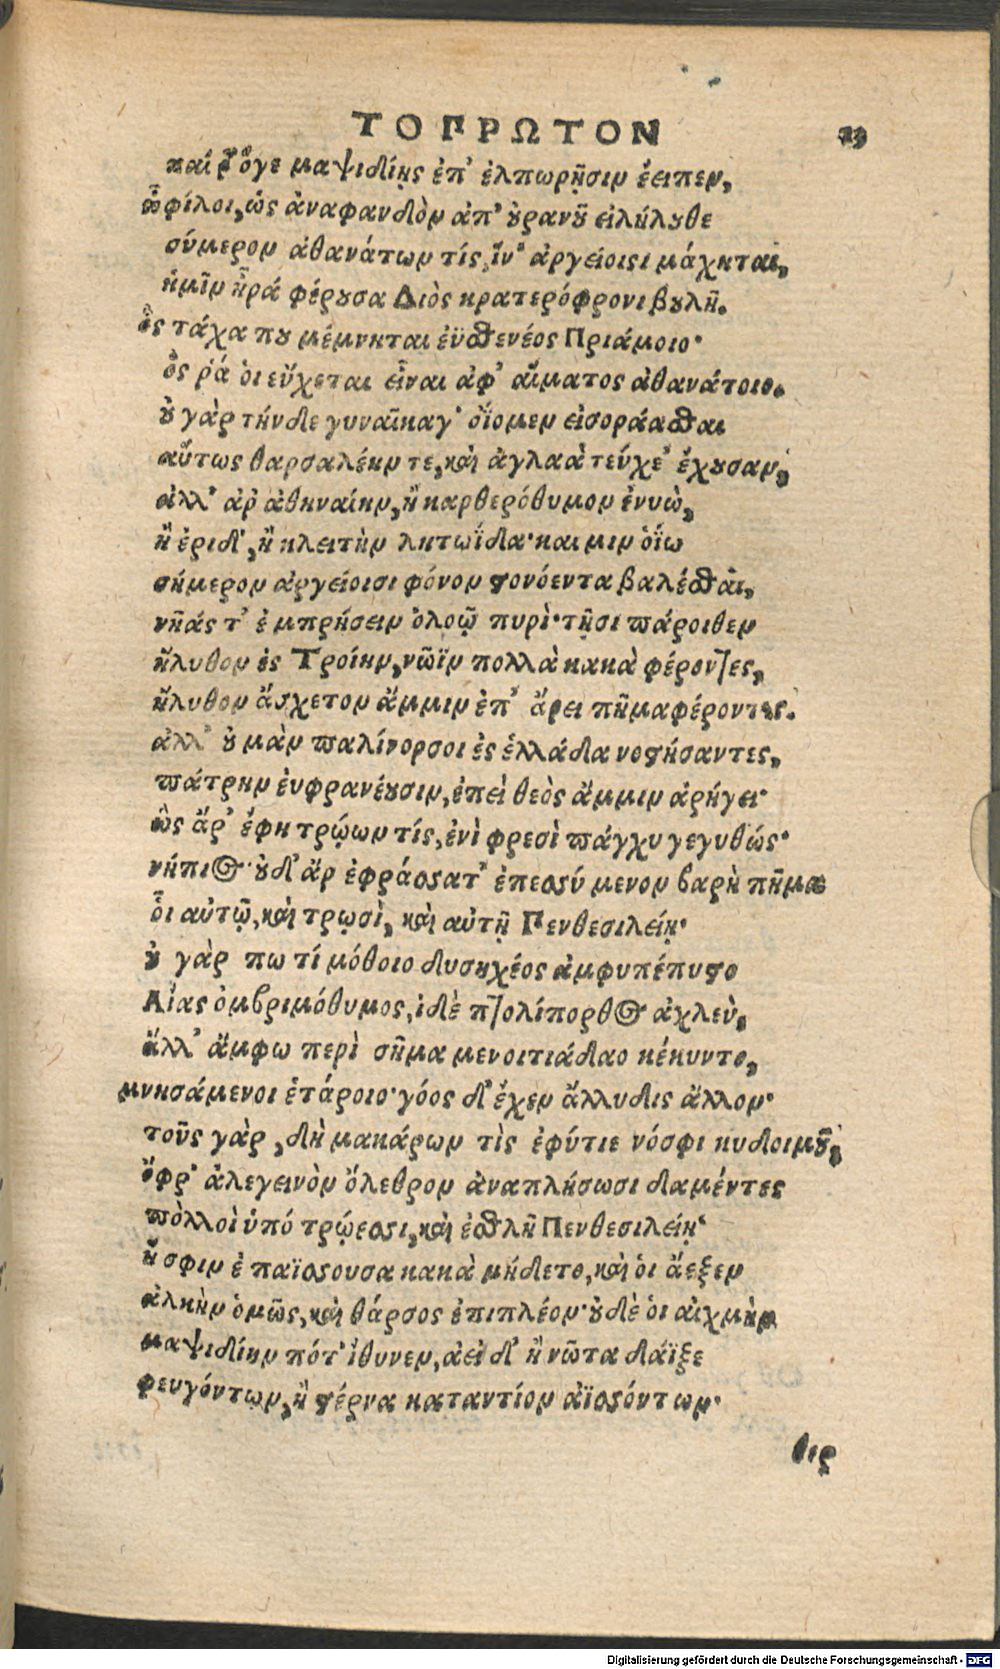 ΤΟ ΠΡΩΤΟΝ 23
καί ῥ' ὅγε μαψιδίῃς ἐπ' ἐλπωρῇσιν ἔειπεν,
ὦ φίλοι, ὡς ἀναφανδὸν ἀπ' οὐρανοῦ εἰλήλουθε
σύμερον ἀθανάτων τίς, ἵν' ἀργείοισι μάχηται,
ἡμῖν ἦρά φέρουσα Διὸς κρατερόφρονι βουλῇ.
ὃς τάχα που μέμνηται ἐϋσθενέος Πριάμοιο·
ὅς ῥά ὁι εὔχεται εἶναι ἀφ' αἵματος ἀθανάτοιο.
οὐ γὰρ τήνδε γυναῖκαγ' ὀΐομεν εἰσοράασθαι
αὕτως θαρσαλέην τε, καὶ ἀγλαὰ τεύχε' ἔχουσαν,
ἀλλ' ἀρ ἀθηναίην, ἢ καρθερόθυμον ἐνυὼ,
ἢ ἐριδ', ἢ κλειτὴν λητωΐδα· και μιν ὀΐω
σήμερον ἀργείοισι φόνον στονόεντα βαλέσθαι,
νῆάς τ' ἐμπρήσειν ὀλοῷ πυρὶ· τῇσι πάροιθεν
ἤλυθον ἐς Τροίην, νῶϊν πολλὰ κακὰ φέροντες,
ἤλυθον ἄσχετον ἄμμιν ἐπ' ἄρει πῆμα φέροντες.
ἀλλ' οὐ μὰν παλίνορσοι ἐς ἑλλάδα νοστήσαντες,
πάτρην ἐυφρανέουσιν, ἐπεὶ θεὸς ἄμμιν ἀρήγει·
ὣς ἄρ' ἔφη τρώων τίς, ἐνὶ φρεσὶ πάγχυ γεγυθώς·
νήπιος· οὐδ' ἄρ ἐφράσσατ' ἐπεσσύμενον βαρὴ πῆμα
οἷ αὐτῷ, καὶ τρωσὶ, καὶ αὐτῇ Πενθεσιλείῃ·
οὐ γὰρ πω τί μόθοιο δυσηχέος ἀμφυπέπυστο
Αἴας ὀμβριμόθυμος, ἰδὲ πτολίπορθος ἀχλεὺ,
ἄλλ' ἄμφω περὶ σῆμα μενοιτιάδαο κέκυντο,
μνησάμενοι ἑτάροιο· γόος δ' ἔχεν ἄλλυδις ἄλλον·
τοῦς γὰρ, δὴ μακάρων τὶς ἐφύτιε νόσφι κυδοιμοῦ,
ὄφρ' ἀλεγεινὸν ὄλεθρον ἀναπλήσωσι δαμέντες
πὸλλοὶ ὑπό τρώεσσι, καὶ ἐσθλῇ Πενθεσιλείῃ·
ἥ σφιν ἐπαΐσσουσα κακὰ μήδετο, καὶ ὁι ἄεξεν
ἀλκὴν ὁμῶς, καὶ θάρσος ἐπιπλέον· οὐδὲ ὁι αἰχμὴν
μαψιδίην πότ' ἴθυνεν, ἀεὶ δ' ἢ νῶτα δάϊξε
φευγόντων, ἢ στέρνα καταντίον ἀϊσσόντων·
θερ
Digitalisierung gefördert durch die Deutsche Forschungsgemeinschaft - DFG